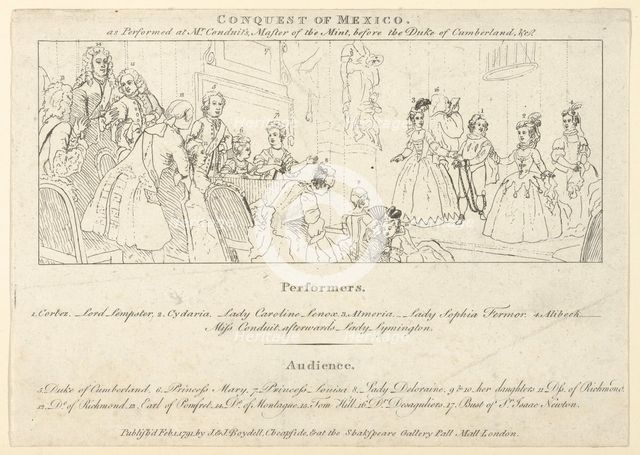 CONQUEST OF MEXICO.
as Performed at Mr. Conduit's, Master of the Mint, before the Duke of Cumberland, &c.
Performers.
1. Cortez. Lord Lempster, 2. Cydaria. Lady Caroline Lenox. 3. Almeria. Lady Sophia Fermor. 4. Alibech.
Miss Conduit, afterwards Lady Lymington.
Audience.
5. Duke of Cumberland. 6. Princess Mary. 7. Princess Louisa 8. Lady Deloraine. 9 & 10. her daughters 11. Dss. of Richmond.
12. D. of Richmond. 13. Earl of Pomfret. 14. D. of Montague. 15. Tom Hill. 16. Dr. Desaguliers. 17. Bust of Sr. Isaac Newton.
Publish'd Feb. 1. 1791, by J. & J. Boydell, Cheapside, & at the Shakspeare Gallery Pall Mall London.